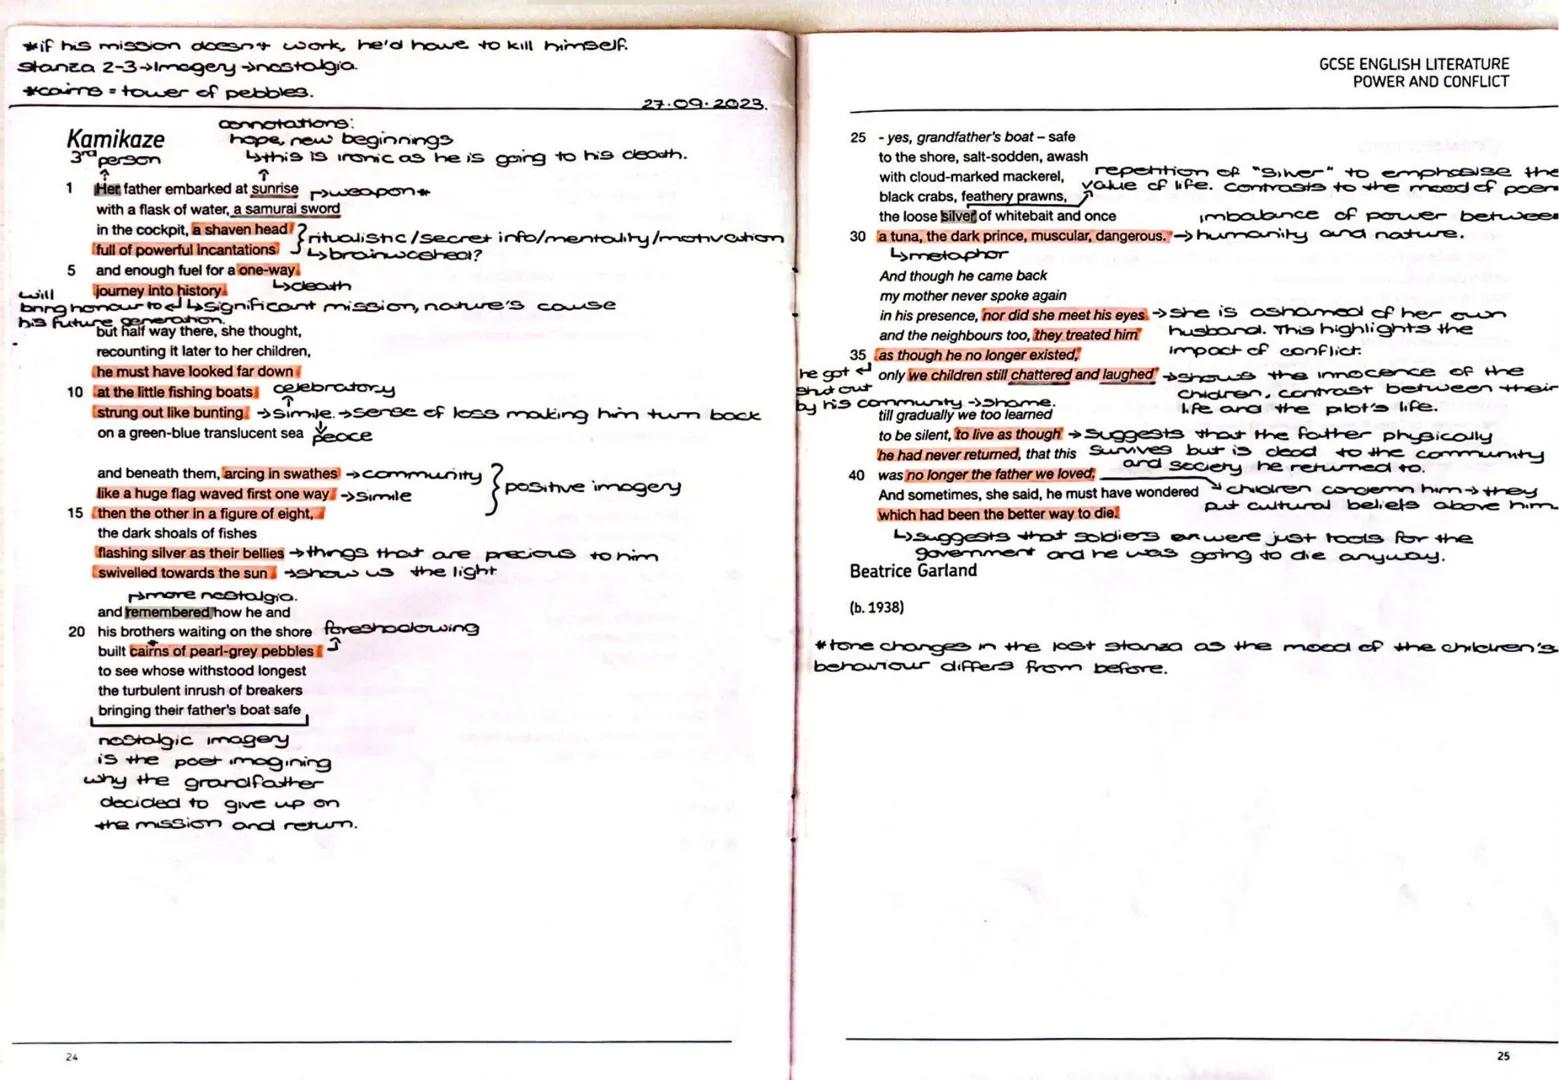 *if his mission doesn't work, he'd have to kill himself.
Stanza 2-3→Imagery→nostalgia.
*cairns = tower of pebbles.
27.09.2023.
Kamikaze
connotations:
hope, new beginnings
↳this is ironic as he is going to his death.
3rd person
1 Her father embarked at sunrise
↱weapon*
with a flask of water, a samurai sword
in the cockpit, a shaven head
full of powerful incantations
ritualistic/secret info/mentality/motivation
↳brainwashed?
5 and enough fuel for a one-way
↳death
journey into history
will bring honour to his future generation.
↳significant mission, nature's cause
but half way there, she thought,
recounting it later to her children,
he must have looked far down
10 at the little fishing boats
celebratory
strung out like bunting
→simile.→sense of loss making him turn back
on a green-blue translucent sea
peace
and beneath them, arcing in swathes
→community
like a huge flag waved first one way
→simile
positive imagery
15 then the other in a figure of eight,
the dark shoals of fishes
flashing silver as their bellies
→things that are precious to him
swivelled towards the sun
→show us the light
↱more nostalgia.
and remembered how he and
20 his brothers waiting on the shore
foreshadowing
built cairns of pearl-grey pebbles
to see whose withstood longest
the turbulent inrush of breakers
bringing their father's boat safe
nostalgic imagery
is the poet imagining
why the grandfather
decided to give up on
the mission and return.
24
GCSE ENGLISH LITERATURE
POWER AND CONFLICT
25 - yes, grandfather's boat – safe
to the shore, salt-sodden, awash
with cloud-marked mackerel,
black crabs, feathery prawns,
repetition of "silver" to emphasise the
value of life. contrasts to the mood of poem
the loose silver of whitebait and once
30 a tuna, the dark prince, muscular, dangerous.
imbalance of power between
→humanity and nature.
↳metaphor
And though he came back
my mother never spoke again
in his presence, nor did she meet his eyes
→she is ashamed of her own
husband. This highlights the
impact of conflict.
and the neighbours too, they treated him
35 as though he no longer existed,
only we children still chattered and laughed
he got shut out by his community →shame.
→shows the innocence of the
children, contrast between their
life and the pilot's life.
till gradually we too learned
to be silent, to live as though
he had never returned, that this
→suggests that the father physically
survives but is dead to the community
and society he returned to.
40 was no longer the father we loved.
↘children condemn him→they
put cultural beliefs above him
And sometimes, she said, he must have wondered
which had been the better way to die.
↳suggests that soldiers were just tools for the
government and he was going to die anyway.
Beatrice Garland
(b. 1938)
*tone changes in the last stanza as the mood of the children's
behaviour differs from before.
25